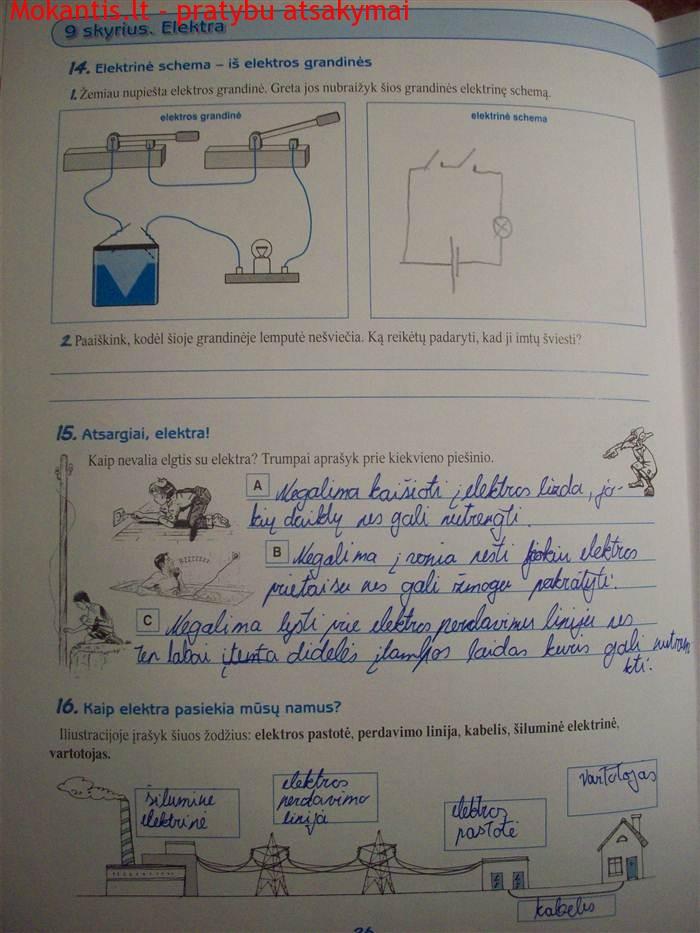 Mokantis.lt - pratybu atsakymai
9 skyrius. Elektra
14. Elektrinė schema – iš elektros grandinės
1. Žemiau nupiešta elektros grandinė. Greta jos nubraižyk šios grandinės elektrinę schemą.
elektros grandinė
elektrinė schema
2. Paaiškink, kodėl šioje grandinėje lemputė nešviečia. Ką reikėtų padaryti, kad ji imtų šviesti?
15. Atsargiai, elektra!
Kaip nevalia elgtis su elektra? Trumpai aprašyk prie kiekvieno piešinio.
A Negalima kaišioti į elektros lizda, jo-
kių daiktų nes gali nutrengti.
B Negalima į vonia nešti jokiu elektros
prietaisu nes gali žmogu pakratyti.
C Negalima lysti prie elektros perdavimu liniju nes
ten labai įtemta didelės įtampos laidas kuris gali nutren
kti.
16. Kaip elektra pasiekia mūsų namus?
Iliustracijoje įrašyk šiuos žodžius: elektros pastotė, perdavimo linija, kabelis, šiluminė elektrinė,
vartotojas.
šiluminė
elektrinė
elektros
perdavimo
linija
elektros
pastotė
vartotojas
kabelis
26